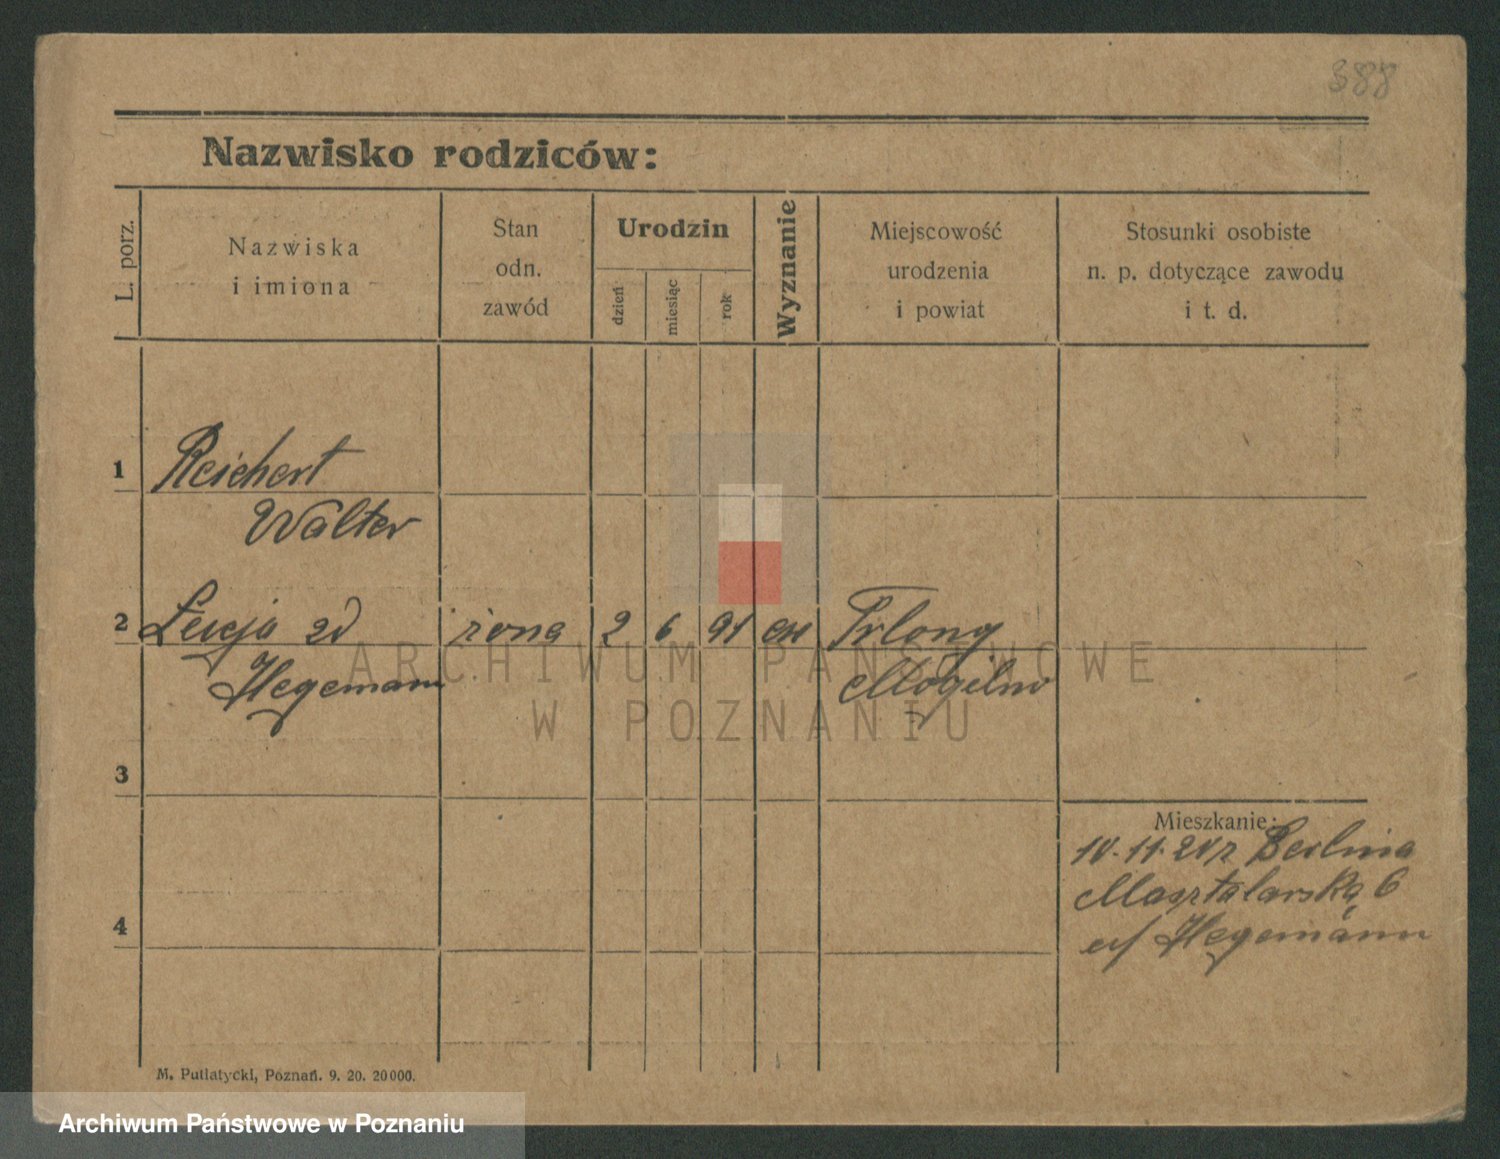 388
Nazwisko rodziców:
L. porz.
Nazwiska
i imiona
Stan
odn.
zawód
Urodzin
dzień
miesiąc
rok
Wyznanie
Miejscowość
urodzenia
i powiat
Stosunki osobiste
n. p. dotyczące zawodu
i t. d.
1 Reichert
Walter
2 żona 2 6 91 Mogilno
Hegemann
3
4
Mieszkanie:
Berlina
Masztalarska 6
Hegemann
M. Putiatycki, Poznań. 9. 20. 20000.
ARCHIWUM PAŃSTWOWE
W POZNANIU
Archiwum Państwowe w Poznaniu